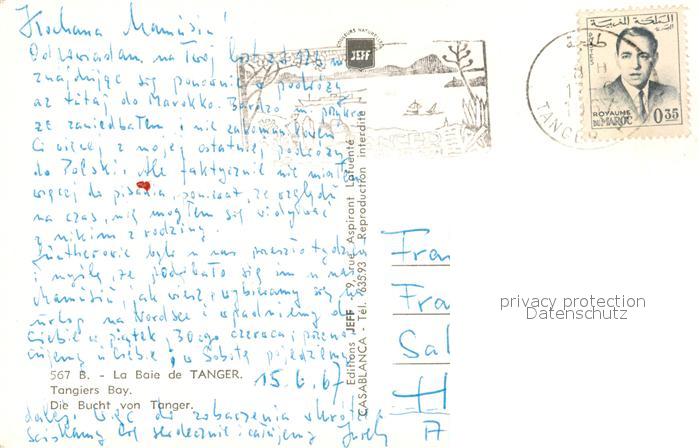 Kochana Mamusiu!
Odpowiadam na Twój list z
znajdując się ponownie w podróży
aż tutaj do Marokko. Bardzo mi przykro
że zaniedbałem i nie zawiadomiłem
Ci więcej z mojej ostatniej podróży
do Polski. Ale faktycznie nie miałem
więcej do pisania, ponieważ, ze względu
na czas, nie mogłem się widywać
z nikim z rodziny.
byli u nas przeszło tydzień
i myślę, że podobało się im u nas
Mamusiu, jak wiesz, wybieramy się na
urlop na Nordsee i wpadniemy do
Ciebie w piątek, 30ego czerwca
u Ciebie, w Sobotę pojedziemy
15.6.67
dalej więc do zobaczenia
Ściskamy Cię serdecznie i całujemy
COULEURS NATURELLES
JEFF
TANGER
ROYAUME
DU MAROC
0.35
المملكة المغربية
طنجة
Editions JEFF - 79, rue Aspirant Lafuente
CASABLANCA - Tél. 635.93 - Reproduction interdite
Fra
Fra
Sal
H
A
privacy protection
Datenschutz
567 B. - La Baie de TANGER.
Tangiers Bay.
Die Bucht von Tanger.